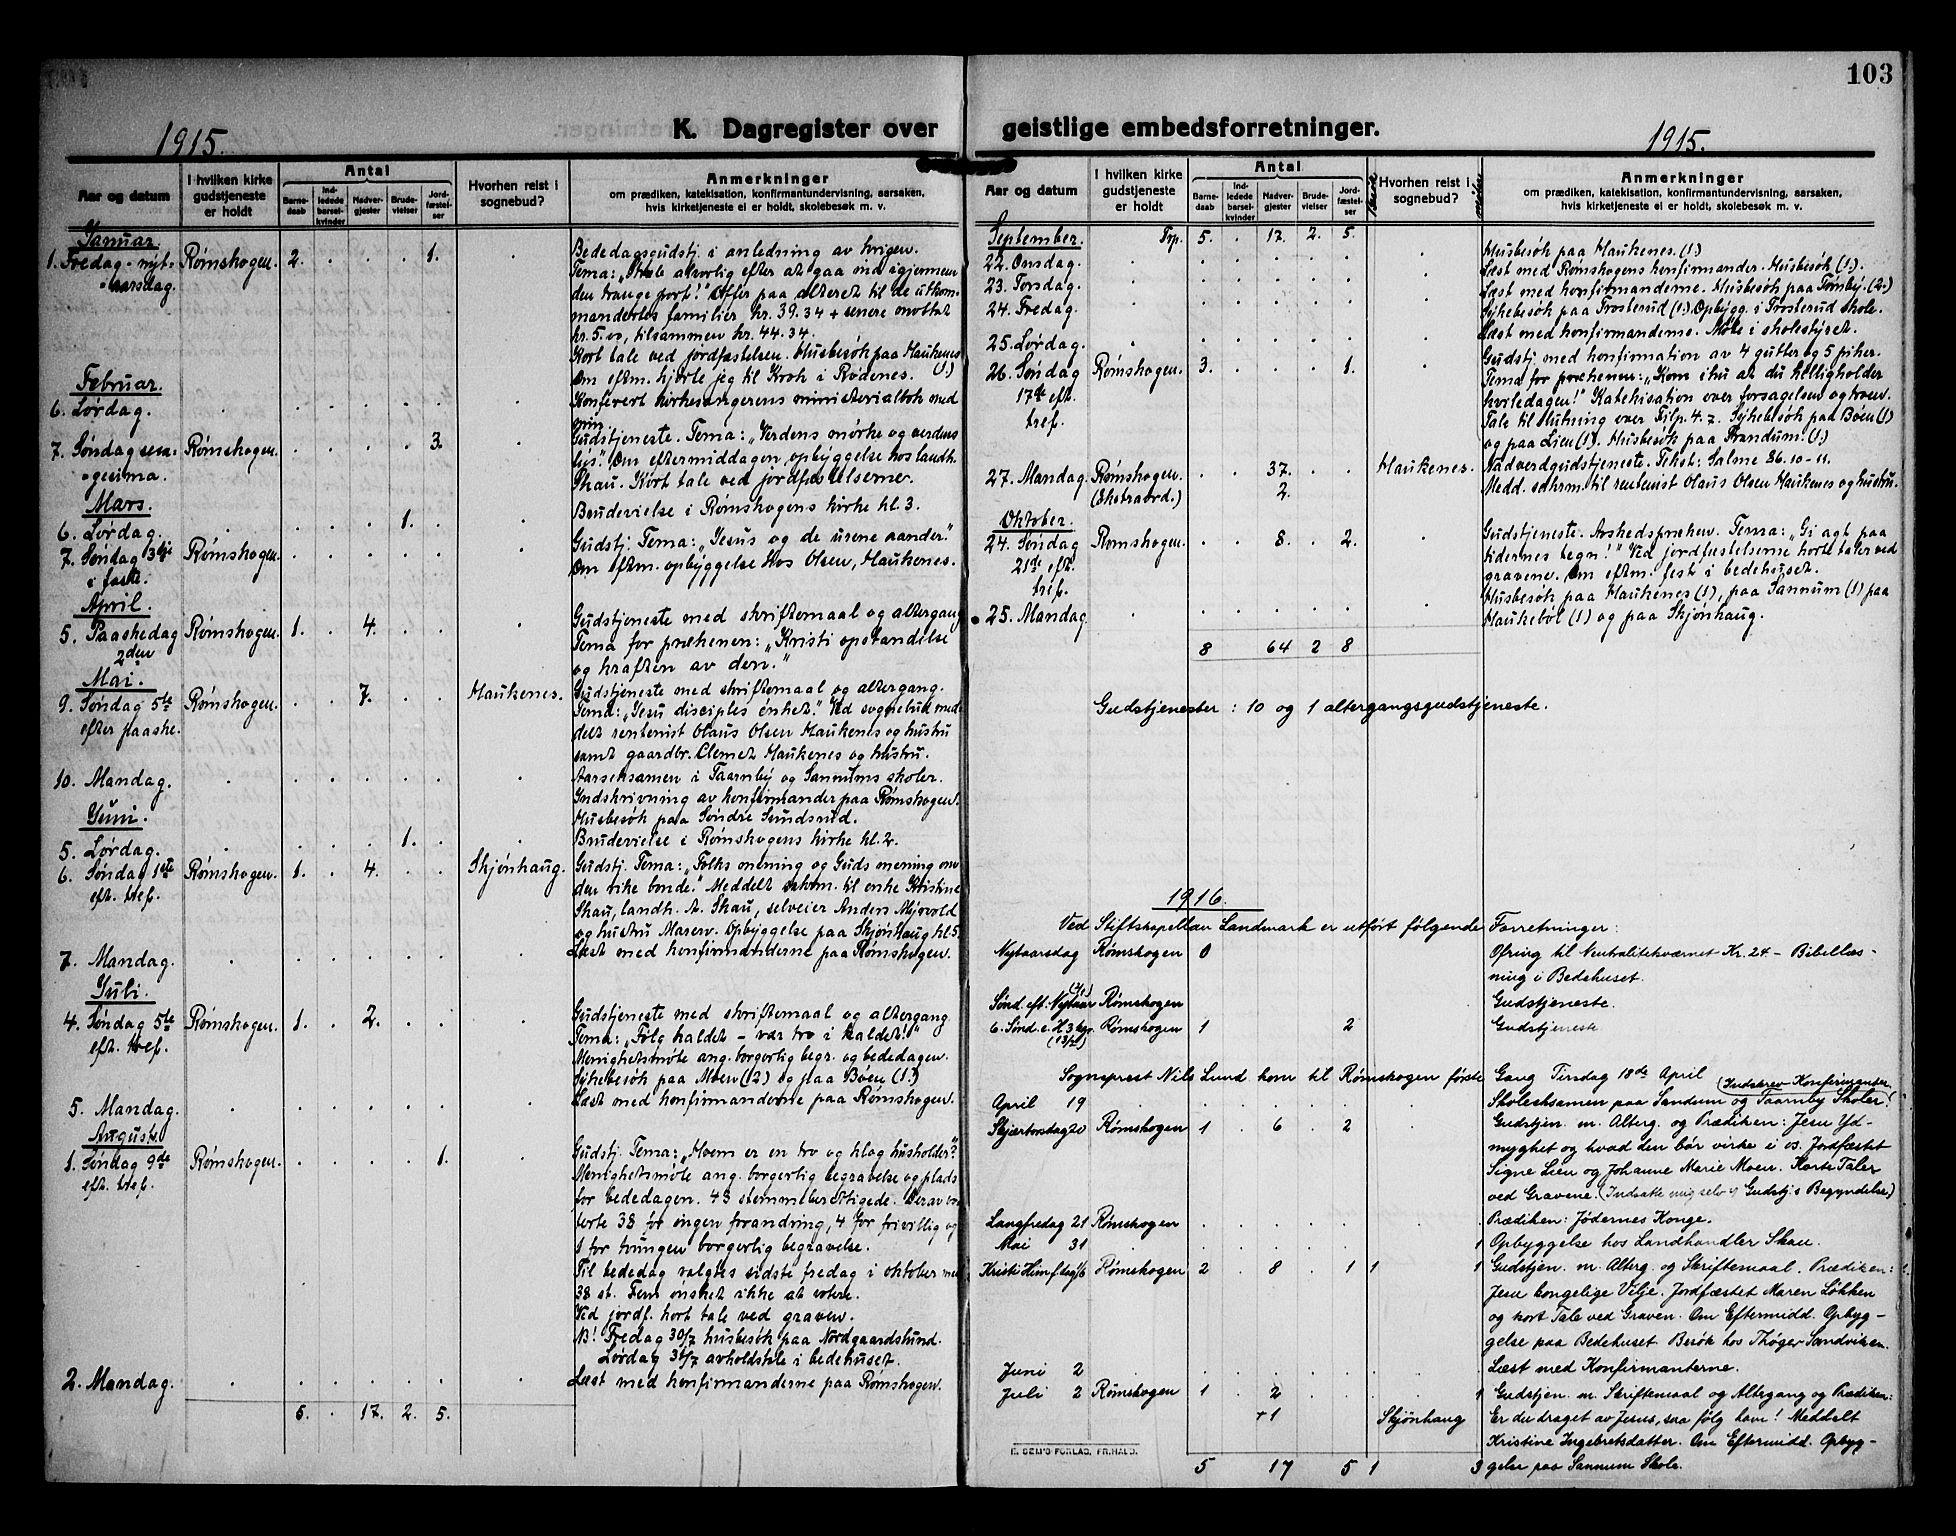 103
K. Dagregister over geistlige embedsforretninger.
1915.
1915.
Aar og datum
I hvilken kirke gudstjeneste er holdt
Antal
Barnedaab
Indledede barselkvinder
Nadvergjester
Brudevielser
Jordfæstelser
Hvorhen reist i sognebud?
Anmerkninger
om prædiken, katekisation, konfirmantundervisning, aarsaken,
hvis kirketjeneste ei er holdt, skolebesøk m. v.
Januar
1. Fredag - nyt- Rømskogen. 2. . . . 1. . Bededagsgudstj. i anledning av krigen.
- aarsdag. Tema: "Stræb alvorlig efter at gaa ind igjennem
den trange port!" Offer paa alteret til de utkom-
mandertes familier kr. 39.34 + senere mottat
kr. 5.00, tilsammen kr. 44.34.
Kort tale ved jordfæstelsen. Husbesøk paa Haukenes
Om eftm. kjørte jeg til Krok i Rødenes. (1.)
Februar.
6. Lørdag. Konfert kirkesangerens ministerialbok med
min.
7. Søndag sexa- Rømskogen. . . . . 3. . Gudstjeneste. Tema: "Verdens mørke og verdens
gesima. lys." Om eftermiddagen opbyggelse hos landh.
Skau. Kort tale ved jordfæstelserne.
Mars.
6. Lørdag. . . . . 1. . . Brudevielse i Rømskogens kirke kl. 3.
7. Søndag 3dje Rømskogen. Gudstj. Tema: "Jesus og de urene aander."
i faste. Om eftm. opbyggelse hos Olsen, Haukenes.
April.
5. Paaskedag Rømskogen. 1. . 4. . . . Gudstjeneste med skriftemaal og altergang
2den Tema for prækenen: "Kristi opstandelse
og kraften av den."
Mai.
9. Søndag 5te Rømskogen. . . 7. . . Haukenes. Gudstjeneste med skriftemaal og altergang.
efter paaske. Tema: "Jesu disciples enhet." Ved sognebud med-
delt rentenist Olaus Olsen Haukenes og hustru
samt gaardbr. Clemet Haukenes og hustru.
10. Mandag. Aarseksamen i Taarnby og Sannums skoler.
Indskrivning av konfirmander paa Rømskogen.
Husbesøk paa Søndre Sundsrud.
Juni.
5. Lørdag. . . . . 1. . . Brudevielse i Rømskogens kirke kl. 2.
6. Søndag 1ste Rømskogen. 1. . 4. . . Skjønhaug. Gudstj. Tema: "Folks mening og Guds mening om
eft. tref. den rike bonde." Meddelt sakrm. til enke Kristine
Skau, landh. A. Skau, selveier Anders Myrvold
og hustru Maren. Opbyggelse paa Skjønhaug kl. 5.
7. Mandag. Læst med konfirmanderne paa Rømskogen.
Juli.
4. Søndag 5te Rømskogen. 1. . 2. . . . Gudstjeneste med skriftemaal og altergang
eft. tref. Tema: "Følg kaldet - vær tro i kaldet!"
Menighetsmøte ang. borgerlig begr. og bededagen.
Sykebesøk paa Moen (12) og paa Bøen (1.)
5. Mandag. Læst med konfirmanderne paa Rømskogen.
August.
1. Søndag 9de Rømskogen. . . . . 1. . Gudstj. Tema: "Hvem er en tro og klog husholder?"
eft. tref. Menighetsmøte ang. borgerlig begravelse og plads
for bededagen. 43 stemmeberettigede. Derav vo-
terte 38 for ingen forandring, 4 for frivillig og
1 for tvungen borgerlig begravelse.
Til bededag valgtes sidste fredag i oktober med
38 st. Fem ønsket ikke at votere.
Ved jordf. kort tale ved graven.
NB! Fredag 30/7 husbesøk paa Nordgaardslund.
Lørdag 31/7 avholdstale i bedehuset.
2. Mandag. Læst med konfirmanderne paa Rømskogen.
5. . 17. 2. 5.
Aar og datum
I hvilken kirke gudstjeneste er holdt
Antal
Barnedaab
Indledede barselkvinder
Nadvergjester
Brudevielser
Jordfæstelser
Hvorhen reist i sognebud?
Anmerkninger
om prædiken, katekisation, konfirmantundervisning, aarsaken,
hvis kirketjeneste ei er holdt, skolebesøk m. v.
September. Trp. 5. . 17. 2. 5.
22. Onsdag. Husbesøk paa Haukenes. (1.)
23. Torsdag. Læst med Rømskogens konfirmander. Husbesøk (1.).
24. Fredag. Læst med konfirmanderne. Husbesøk paa Tørnby. (2.)
Sykebesøk paa Trosterud (1.) Opbygg. i Trosterud skole.
25. Lørdag. Læst med konfirmanderne. Møte i skolestyret.
26. Søndag Rømskogen. 3. . . . 1. . Gudstj. med konfirmation av 4 gutter og 5 piker.
17de eft. Tema for prækenen: "Kom ihu at du helligholder
tref. hviledagen!" Katekisation over forsagelsen og troen.
Tale til slutning over Filip. 4. 7. Sykebesøk paa Bøen (1)
og paa Lien (1). Husbesøk paa Strandum. (1.)
27. Mandag. Rømskogen. . . 37. . . Haukenes. Nadverdgudstjeneste. Tekst: Salme 86. 10-11.
(Ekstraord.) 2. Medd. sakrm. til rentenist Olaus Olsen Haukenes og hustru.
Oktober.
24. Søndag Rømskogen. . . 8. . 2. . Gudstjeneste. Avskedspræken. Tema: "Gi agt paa
21de eft. tidernes tegn!" Ved jordfæstelserne korte taler ved
tref. gravene. Om eftm. fest i bedehuset.
25. Mandag Husbesøk paa Haukenes (1), paa Sannum (1) paa
Haukebøl (1) og paa Skjønhaug.
8 64 2 8
Gudstjenester: 10 og 1 altergangsgudstjeneste.
1916.
Ved Stiftskapellan Landmark er utført følgende Forretninger:
Nytaarsdag Rømskogen 0 Ofring til Neutralitetsværnet Kr. 24 - Bibellæs-
ning i Bedehuset.
Sønd. eft. Nytaar Rømskogen Gudstjeneste.
6. Sønd. e. H3kgr. Rømskogen 1 2 Gudstjeneste
(13/2)
Sogneprest Nils Lund kom til Rømskogen første Gang Tirsdag 18de April
(Indskrev Konfirmanter.)
April 19 Skoleeksamen paa Sandum og Taarnby Skoler.
Skjærtorsdag 20 Rømskogen 1 . 6 . 2 Gudstjen. m. Alterg. og Prædiken: Jesu Yd-
myghet og hvad den bør virke i os. Jordfæstet
Signe Lien og Johanne Marie Moen. Korte Taler
ved Gravene. (Indsatte mig selv v. Gudstj's Begyndelse)
Langfredag 21 Rømskogen Prædiken: Jødernes Konge.
Mai 31 1 Opbyggelse hos Landhandler Skau.
Kristi Himf.dag 1/6 Rømskogen 2 . 8 . 1 1 1 Gudstjen. m. Alterg. og Skriftemaal. Prædiken:
Jesu kongelige Vilje. Jordfæstet Maren Løkken
og kort Tale ved Graven. Om Eftermidd. Opbyg-
gelse paa Bedehuset. Besøk hos Thøger Sandviken.
Juni 2 Læst med Konfirmanterne.
Juli 2 Rømskogen 1 . 2 . . 1 Gudstjen. m. Skriftemaal og Altergang og Prædiken:
+1 Skjønhaug Er du draget av Jesus, saa følg ham! Meddelt
Kristine Ingebretsdatter. Om Eftermidd. Opbyg-
5 17 5 1 3 gelse paa Sannum Skole.
E. SEM'S FORLAG, FR.HALD.